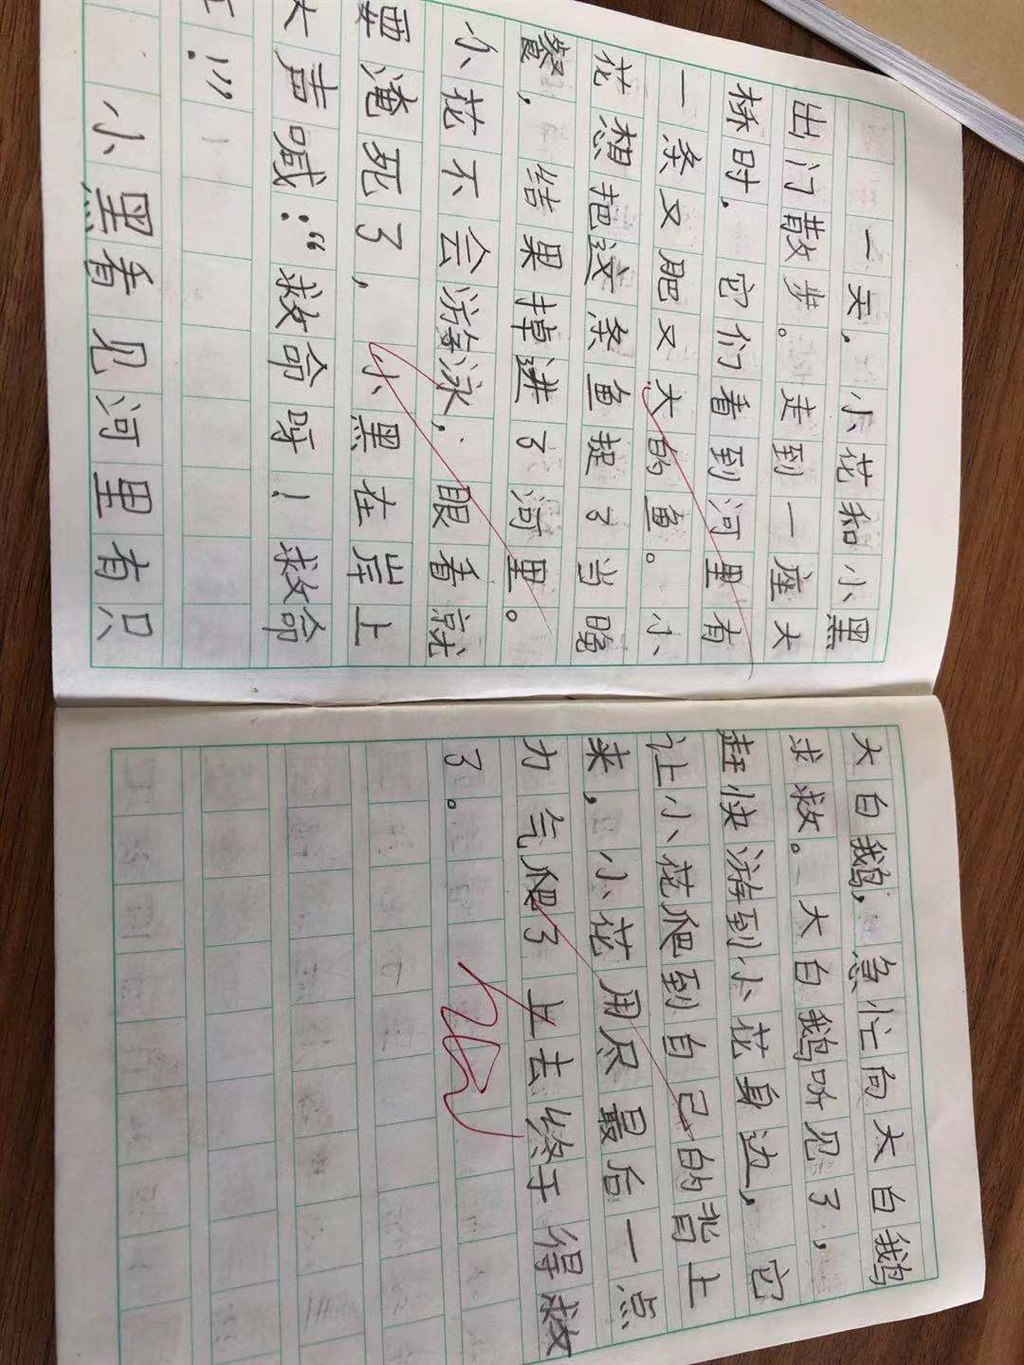 一天，小花和小黑
出门散步。走到一座大
桥时，它们看到河里有
一条又肥又大的鱼。小
花想把这条鱼捉了当晚
餐，结果掉进了河里。
小花不会游泳，眼看就
要淹死了，小黑在岸上
大声喊：“救命呀！救命
！”
小黑看见河里有只
大白鹅，急忙向大白鹅
求救。大白鹅听见了，
赶快游到小花身边，它
让小花爬到自己的背上
来，小花用尽最后一点
力气爬了上去终于得救
了。